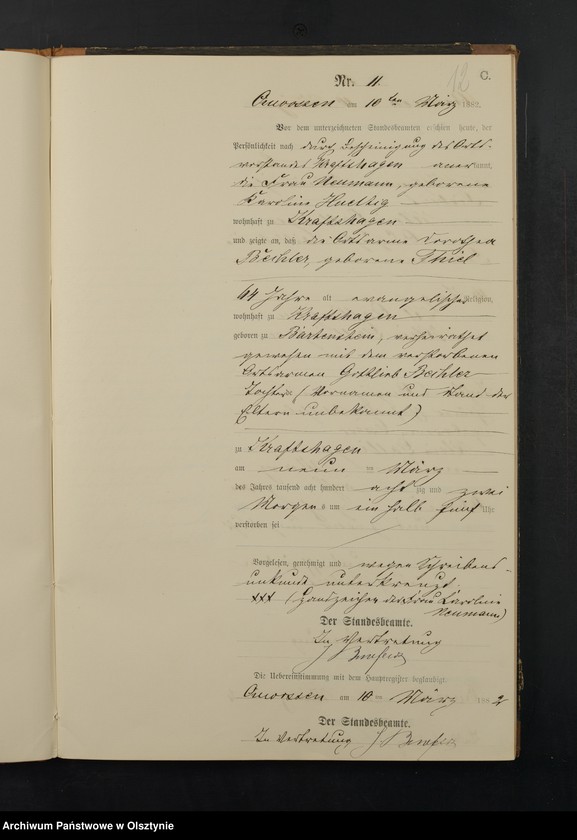 12
C.
Nr. 11.
am 10ten März 1882.
Vor dem unterzeichneten Standesbeamten erschien heute, der
Persönlichkeit nach durch Bescheinigung des Orts-
vorstandes Kraftshagen anerkannt,
die Frau Neumann, geborene
Karoline
wohnhaft zu Kraftshagen
und zeigte an, daß die Ortsarme Dorothea
Beihler, geborene Thiel
64 Jahre alt evangelischer Religion,
wohnhaft zu Kraftshagen
geboren zu Bartenstein, verheirathet
gewesen mit dem verstorbenen
Ortsarmen Gottlieb Beihler
Tochter (Vornamen und Stand der
Eltern unbekannt)
zu Kraftshagen
am neun ten März
des Jahres tausend acht hundert acht zig und zwei
Morgens um ein halb fünf Uhr
verstorben sei
Vorgelesen, genehmigt und wegen Schreibens-
unkunde unterkreuzt.
XXX (Handzeichen der Frau Karoline
Neumann)
Der Standesbeamte.
In Vertretung
Die Uebereinstimmung mit dem Hauptregister beglaubigt
am 10ten März 1882
Der Standesbeamte.
In Vertretung
Archiwum Państwowe w Olsztynie